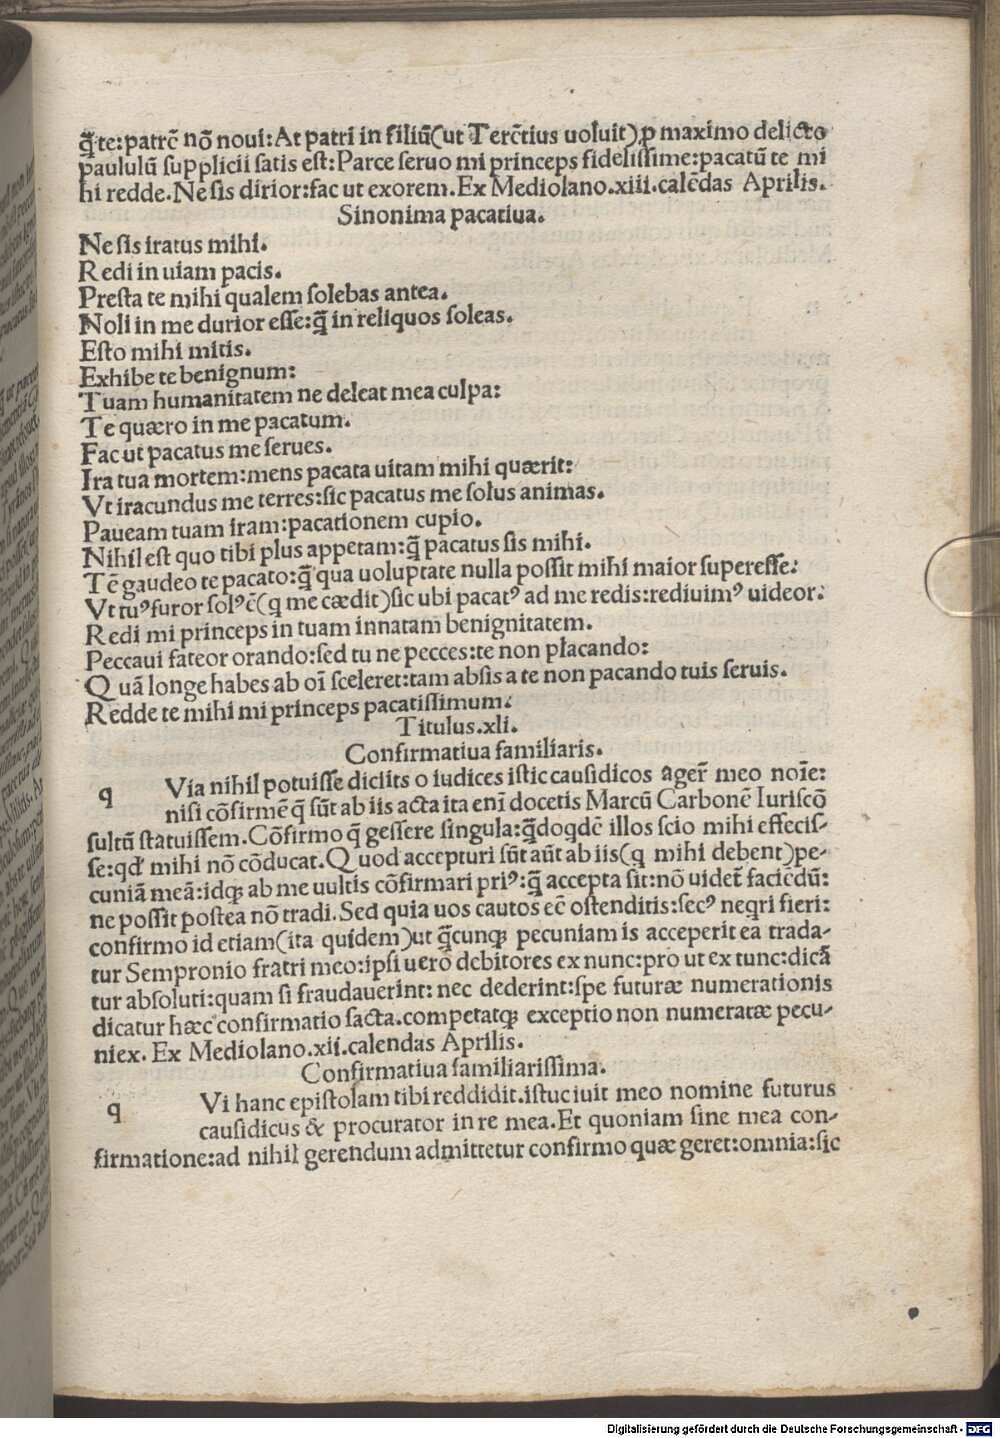 q̄̃te:patrē nō noui:At patri in filiū(ut Terētius uoluit)ꝓ maximo delicto
paululū supplicii satis est:Parce seruo mi princeps fidelissime:pacatū te mi
hi redde.Ne sis dirior:fac ut exorem.Ex Mediolano.xiii.calēdas Aprilis.
Sinonima pacatiua.
Ne sis iratus mihi.
Redi in uiam pacis.
Presta te mihi qualem solebas antea.
Noli in me durior esse:q̄ in reliquos soleas.
Esto mihi mitis.
Exhibe te benignum:
Tuam humanitatem ne deleat mea culpa:
Te quæro in me pacatum.
Fac ut pacatus me serues.
Ira tua mortem:mens pacata uitam mihi quærit:
Vt iracundus me terres:sic pacatus me solus animas.
Paueam tuam iram:pacationem cupio.
Nihil est quo tibi plus appetam:q̄ pacatus sis mihi.
Tē gaudeo te pacato:q̄ qua uoluptate nulla possit mihi maior superesse.
Vt tuꝰ furor solꝰ ē(q me cædit)sic ubi pacatꝰ ad me redis:rediuimꝰ uideor.
Redi mi princeps in tuam innatam benignitatem.
Peccaui fateor orando:sed tu ne pecces:te non placando:
Quā longe habes ab oī sceleret:tam absis a te non pacando tuis seruis.
Redde te mihi mi princeps pacatissimum.
Titulus.xli.
Confirmatiua familiaris.
q Via nihil potuisse diciits o iudices istic causidicos ager̄ meo noīe:
nisi cōfirmē q̄ sūt ab iis acta ita enī docetis Marcū Carbonē Iuriscō
sultū statuissem.Cōfirmo q̄ gessere singula:q̄doqdē illos scio mihi effecis-
se:qd̄ mihi nō cōducat.Quod accepturi sūt aūt ab iis(q mihi debent)pe-
cuniā meā:idqꝫ ab me uultis cōfirmari priꝰ:q̄ accepta sit:nō uidet̄ faciēdū:
ne possit postea nō tradi.Sed quia uos cautos eē ostenditis:secꝰ neqri fieri:
confirmo id etiam(ita quidem)ut q̄cunqꝫ pecuniam is acceperit ea trada-
tur Sempronio fratri meo:ipsi uero debitores ex nunc:pro ut ex tunc:dicā
tur absoluti:quam si fraudauerint: nec dederint:spe futuræ numerationis
dicatur hæc confirmatio facta.competatqꝫ exceptio non numeratæ pecu-
niex. Ex Mediolano.xii.calendas Aprilis.
Confirmatiua familiarissima.
q Vi hanc epistolam tibi reddidit.istuc iuit meo nomine futurus
causidicus & procurator in re mea.Et quoniam sine mea con-
firmatione:ad nihil gerendum admittetur confirmo quæ geret:omnia:sic
Digitalisierung gefördert durch die Deutsche Forschungsgemeinschaft - DFG